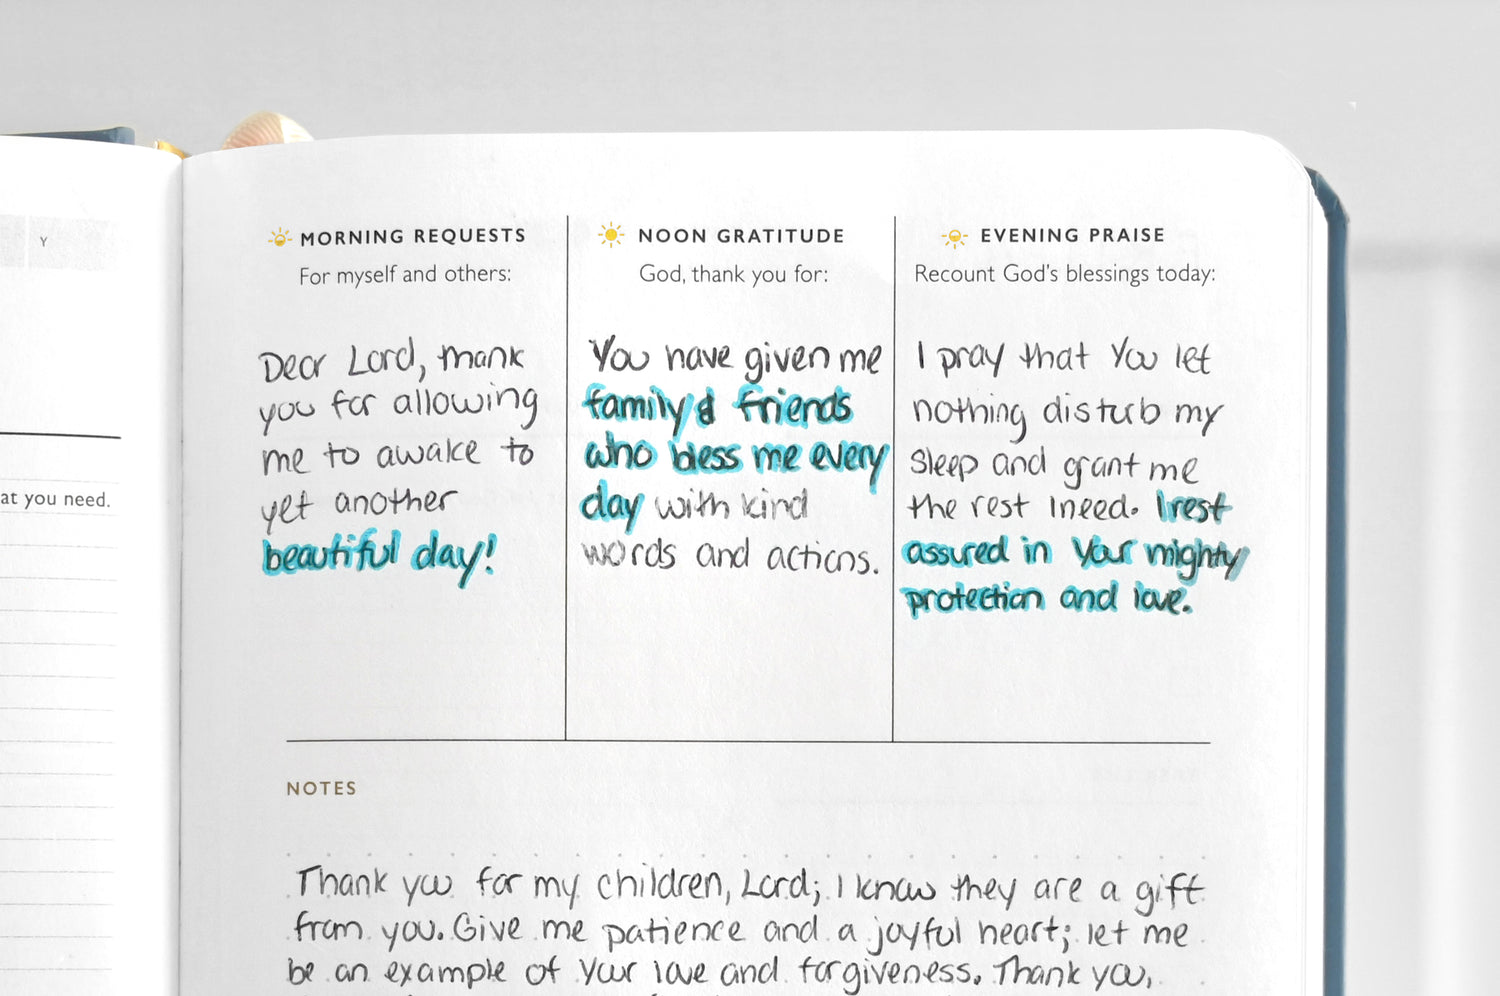 Y
at you need.
MORNING REQUESTS
For myself and others:
Dear Lord, thank
you for allowing
me to awake to
yet another
beautiful day!
NOON GRATITUDE
God, thank you for:
You have given me
family & friends
who bless me every
day with kind
words and actions.
EVENING PRAISE
Recount God's blessings today:
I pray that You let
nothing disturb my
sleep and grant me
the rest I need. I rest
assured in Your mighty
protection and love.
NOTES
Thank you for my children, Lord; I know they are a gift
from you. Give me patience and a joyful heart; let me
be an example of your love and forgiveness. Thank you,